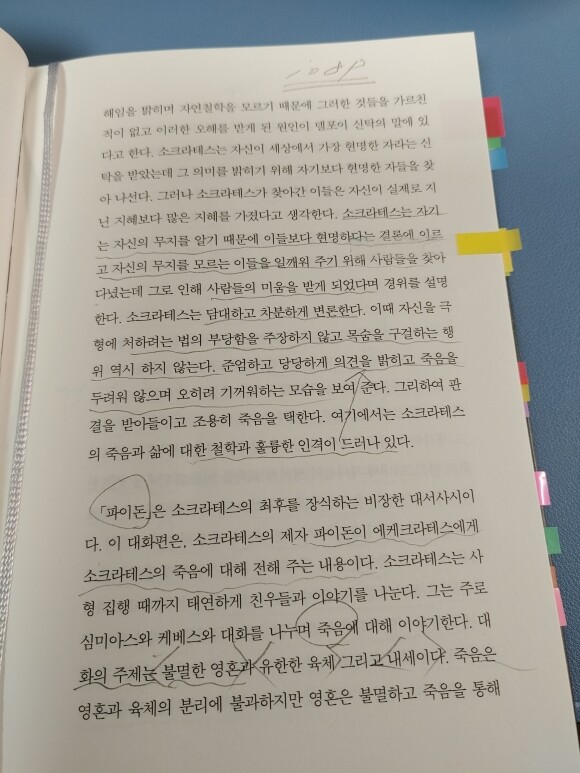 해임을 밝히며 자연철학을 모르기 때문에 그러한 것들을 가르친
적이 없고 이러한 오해를 받게 된 원인이 델포이 신탁의 말에 있
다고 한다. 소크라테스는 자신이 세상에서 가장 현명한 자라는 신
탁을 받았는데 그 의미를 밝히기 위해 자기보다 현명한 자들을 찾
아 나선다. 그러나 소크라테스가 찾아간 이들은 자신이 실제로 지
닌 지혜보다 많은 지혜를 가졌다고 생각한다. 소크라테스는 자기
는 자신의 무지를 알기 때문에 이들보다 현명하다는 결론에 이르
고 자신의 무지를 모르는 이들을 일깨워 주기 위해 사람들을 찾아
다녔는데 그로 인해 사람들의 미움을 받게 되었다며 경위를 설명
한다. 소크라테스는 담대하고 차분하게 변론한다. 이때 자신을 극
형에 처하려는 법의 부당함을 주장하지 않고 목숨을 구걸하는 행
위 역시 하지 않는다. 준엄하고 당당하게 의견을 밝히고 죽음을
두려워 않으며 오히려 기꺼워하는 모습을 보여 준다. 그리하여 판
결을 받아들이고 조용히 죽음을 택한다. 여기에서는 소크라테스
의 죽음과 삶에 대한 철학과 훌륭한 인격이 드러나 있다.
「파이돈」은 소크라테스의 최후를 장식하는 비장한 대서사시이
다. 이 대화편은, 소크라테스의 제자 파이돈이 에케크라테스에게
소크라테스의 죽음에 대해 전해 주는 내용이다. 소크라테스는 사
형 집행 때까지 태연하게 친우들과 이야기를 나눈다. 그는 주로
심미아스와 케베스와 대화를 나누며 죽음에 대해 이야기한다. 대
화의 주제는 불멸한 영혼과 유한한 육체 그리고 내세이다. 죽음은
영혼과 육체의 분리에 불과하지만 영혼은 불멸하고 죽음을 통해